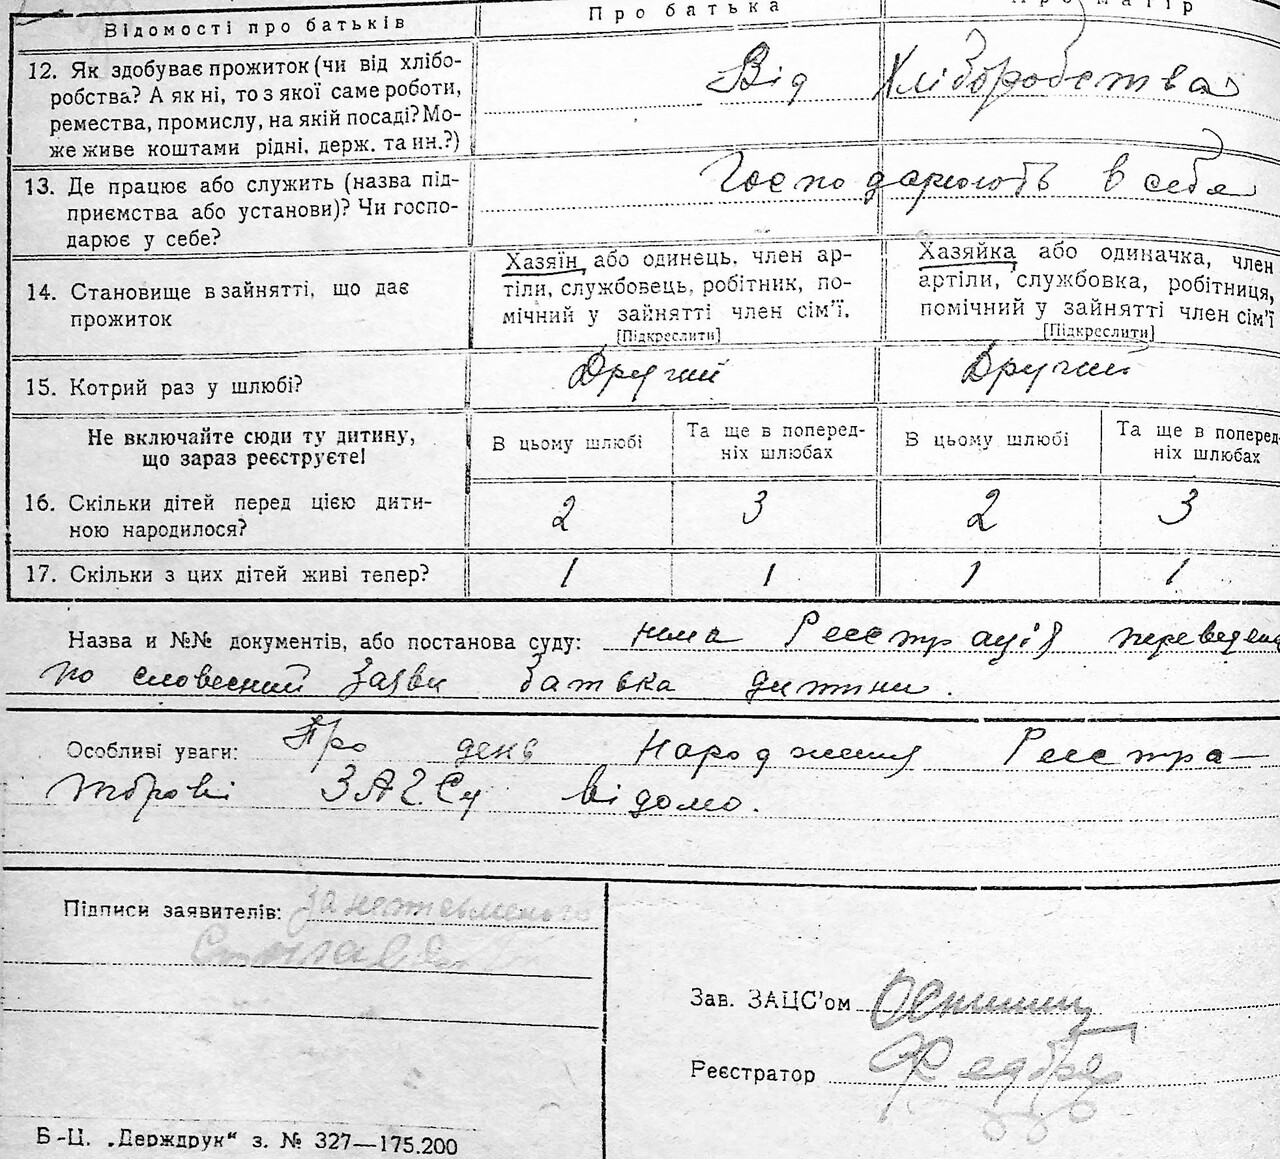 Відомості про батьків
Про батька
Про матір
12. Як здобуває прожиток (чи від хлібо-
робства? А як ні, то з якої саме роботи,
ремества, промислу, на якій посаді? Мо-
же живе коштами рідні, держ. та ин.?)
Від Хліборобства
13. Де працює або служить (назва під-
приємства або установи)? Чи госпо-
дарює у себе?
Господарюють в себе
14. Становище в зайнятті, що дає
прожиток
Хазяїн або одинець, член ар-
тілі, службовець, робітник, по-
мічний у зайнятті член сім'ї.
[Підкреслити]
Хазяйка або одиначка, член
артіли, службовка, робітниця,
помічний у зайнятті член сім'ї
[Підкреслити]
15. Котрий раз у шлюбі?
Другий
Другий
Не включайте сюди ту дитину,
що зараз реєструєте!
В цьому шлюбі
Та ще в поперед-
ніх шлюбах
В цьому шлюбі
Та ще в поперед-
ніх шлюбах
16. Скільки дітей перед цією дити-
ною народилося?
2 3 2 3
17. Скільки з цих дітей живі тепер?
1 1 1 1
Назва и №№ документів, або постанова суду: нима Реєстрація переведена
по словесний Заяви батька дитини.
Особливі уваги: Про день Народження Реєстра-
торові ЗАГСу відомо.
Підписи заявителів: За неписьменого
Зав. ЗАЦС'ом
Реєстратор
Б-Ц. „Держдрук“ з. № 327—175.200